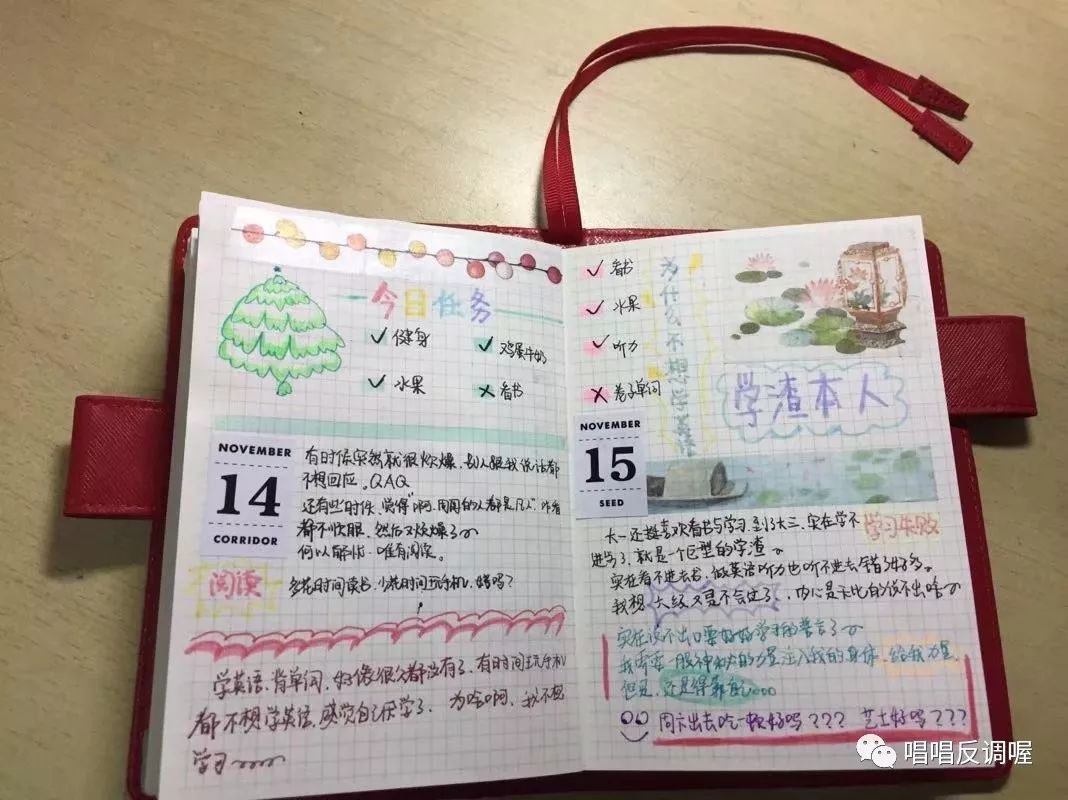 今日任务
✓ 健身
✓ 鸡蛋牛奶
✓ 水果
× 看书
NOVEMBER
14
CORRIDOR
有时候突然就很烦燥,别人跟我说话都
不想回应。QAQ
还有些时候,觉得"啊,周围的人都是凡人",咋看
都不顺眼,然后又烦燥了~
何以解忧,唯有阅读。
阅读
多花时间读书,少花时间玩手机,好吗?
学英语,背单词,好像很久都没有了,有时间玩手机
都不想学英语,感觉自己厌学了,为啥啊,我不想
学习~~~
✓ 看书
✓ 水果
✓ 听力
× 卷子单词
为什么不想学英语
学渣本人
NOVEMBER
15
SEED
大一还挺喜欢看书与学习,到了大三,实在学不
进去了,就是一个巨型的学渣~
学习失败
实在看不进去书,做英语听力也听不进去,错了好多。
我想,六级又是不会过了,内心是无比的说不出啥~
实在说不出口要好好学习的誓言了~
我需要一股神秘的力量注入我的身体,给我力量,
但是,还是得靠自己。。。
周六出去吃一顿好吗??? 芝士好吗???
唱唱反调喔